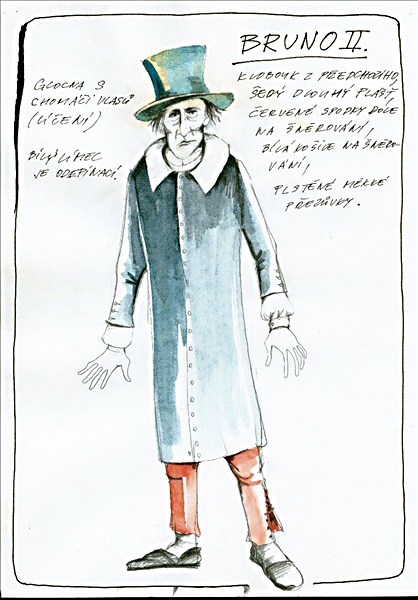 BRUNO II.
KLOBOUK Z PŘEDCHOZÍHO,
ŠEDÝ DLOUHÝ PLÁŠŤ,
ČERVENÉ SPODKY DOLE
NA ŠNĚROVÁNÍ,
BÍLÁ KOŠILE NA ŠNĚRO-
VÁNÍ,
PLSTĚNÉ MĚKKÉ
PŘEZŮVKY.
GLOCNA S
CHOMÁČI VLASŮ
(LÍČENÍ)
BÍLÝ LÍMEC
JE ODEPÍNACÍ.